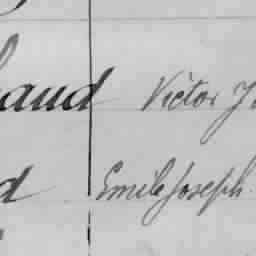 aud Victor J
d Emile Joseph